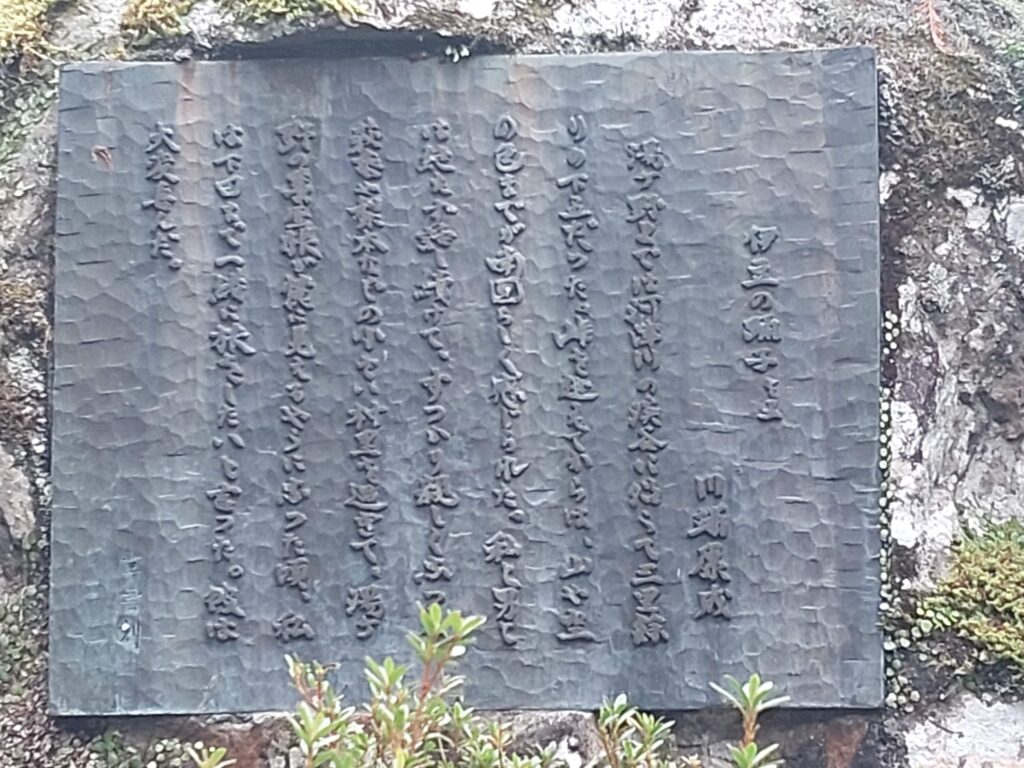 伊豆の踊子より
川端康成
湯ケ野までは河津川の渓谷に沿うて三里余
りの下りだつた。峠を越えてからは、山や空
の色までが南国らしく感じられた。私と男と
は絶えず話し続けて、すつかり親しくなつ
荻乗や梨本なぞの小さい村里を過ぎて、湯ケ
野の藁屋根が麓に見えるやうになつた頃、私
は下田まで一緒に旅をしたいと言つた。彼は
大変喜んだ。